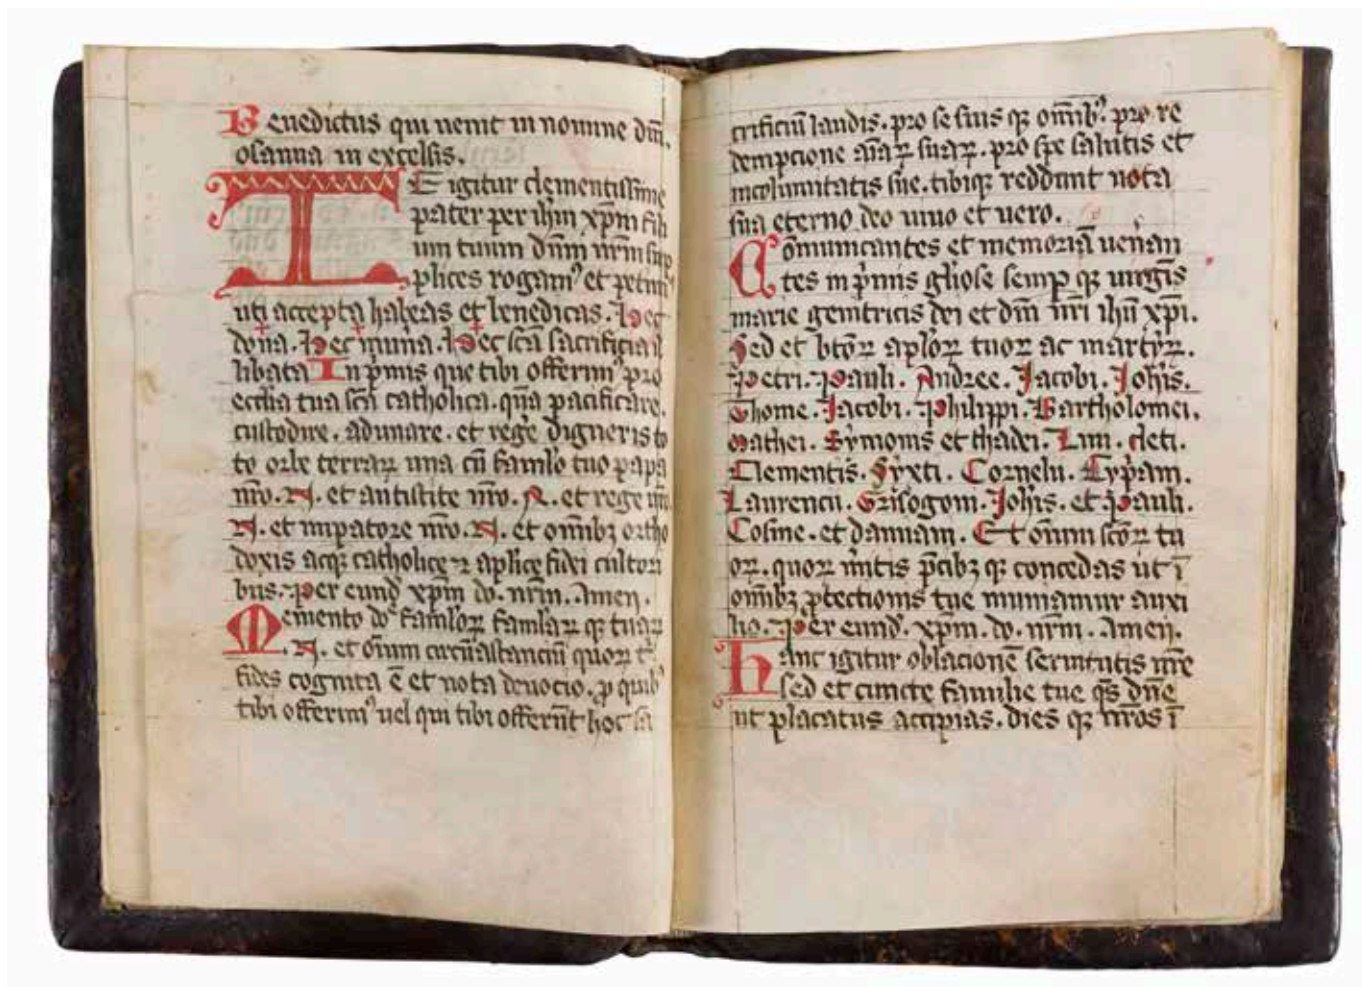 Benedictus qui uenit in nomine dm̄.
osanna in excelsis.
TE igitur clementissime
pater per ihm̄ xp̄m fili
um tuum dn̄m nr̄m sup
plices rogamꝰ et petimꝰ
uti accepta habeas et benedicas. hec
dona. hec mun̄a. hec sc̄a sacrificia il
libata In p̄mis que tibi offerimꝰ pro
ecc̄lia tua sc̄a catholica. quā pacificare.
custodire. adunare. et regē digneris to
to orbe terraꝝ una cū famlo tuo papa
nr̄o. N. et antistite nr̄o. N. et rege nr̄o
N. et impatore nr̄o. N. et omībꝫ ortho
doxis atqꝫ catholice ⁊ aplice fidei cultori
bus. Per eund xp̄m do. nr̄m. Amen.
Memento dō famloꝝ famlaꝝ qꝫ tuaꝝ
.N. et om̄ium circūastanciū quoꝝ t
fides cognita ē et nota deuocio. ꝓ quibꝰ
tibi offerimꝰ uel qui tibi offerūt hoc sa
crificiū laudis. pro se suis qꝫ om̄ibꝰ. pro re
dempcione aīaꝝ suaꝝ. pro spe salutis et
incolumitatis sue. tibiqꝫ reddunt uota
sua eterno deo uiuo et uero.
Cōmunicantes et memoriā uenan
tes in p̄mis gl̄iose semꝑ qꝫ uirgīs
marie genitricis dei et dn̄i nr̄i ihū xp̄i.
Sed et btōꝝ apl̄oꝝ tuoꝝ ac martyꝝ.
Petri. Pauli. Andree. Jacobi. Joh̄is.
Thome. Jacobi. Philippi. Bartholomei.
Mathei. Symonis et thadei. Lini. cleti.
Clementis. Syxti. Cornelii. Cyp̄iani.
Laurencii. Grisogoni. Joh̄is. et Pauli.
Cosme. et damiani. Et om̄ium sc̄oꝝ tu
oꝝ. quoꝝ m̄itis p̄cibꝫ qꝫ concedas ut ī
om̄ibꝫ ꝓtectionis tue muniamur auxi
lio. Per eund. xp̄m. do. nr̄m. Amen.
Hanc igitur oblacionē seruitutis nr̄e
sed et cuncte familie tue qs̄ dn̄e
ut placatus accipias. dies qꝫ nr̄os ī